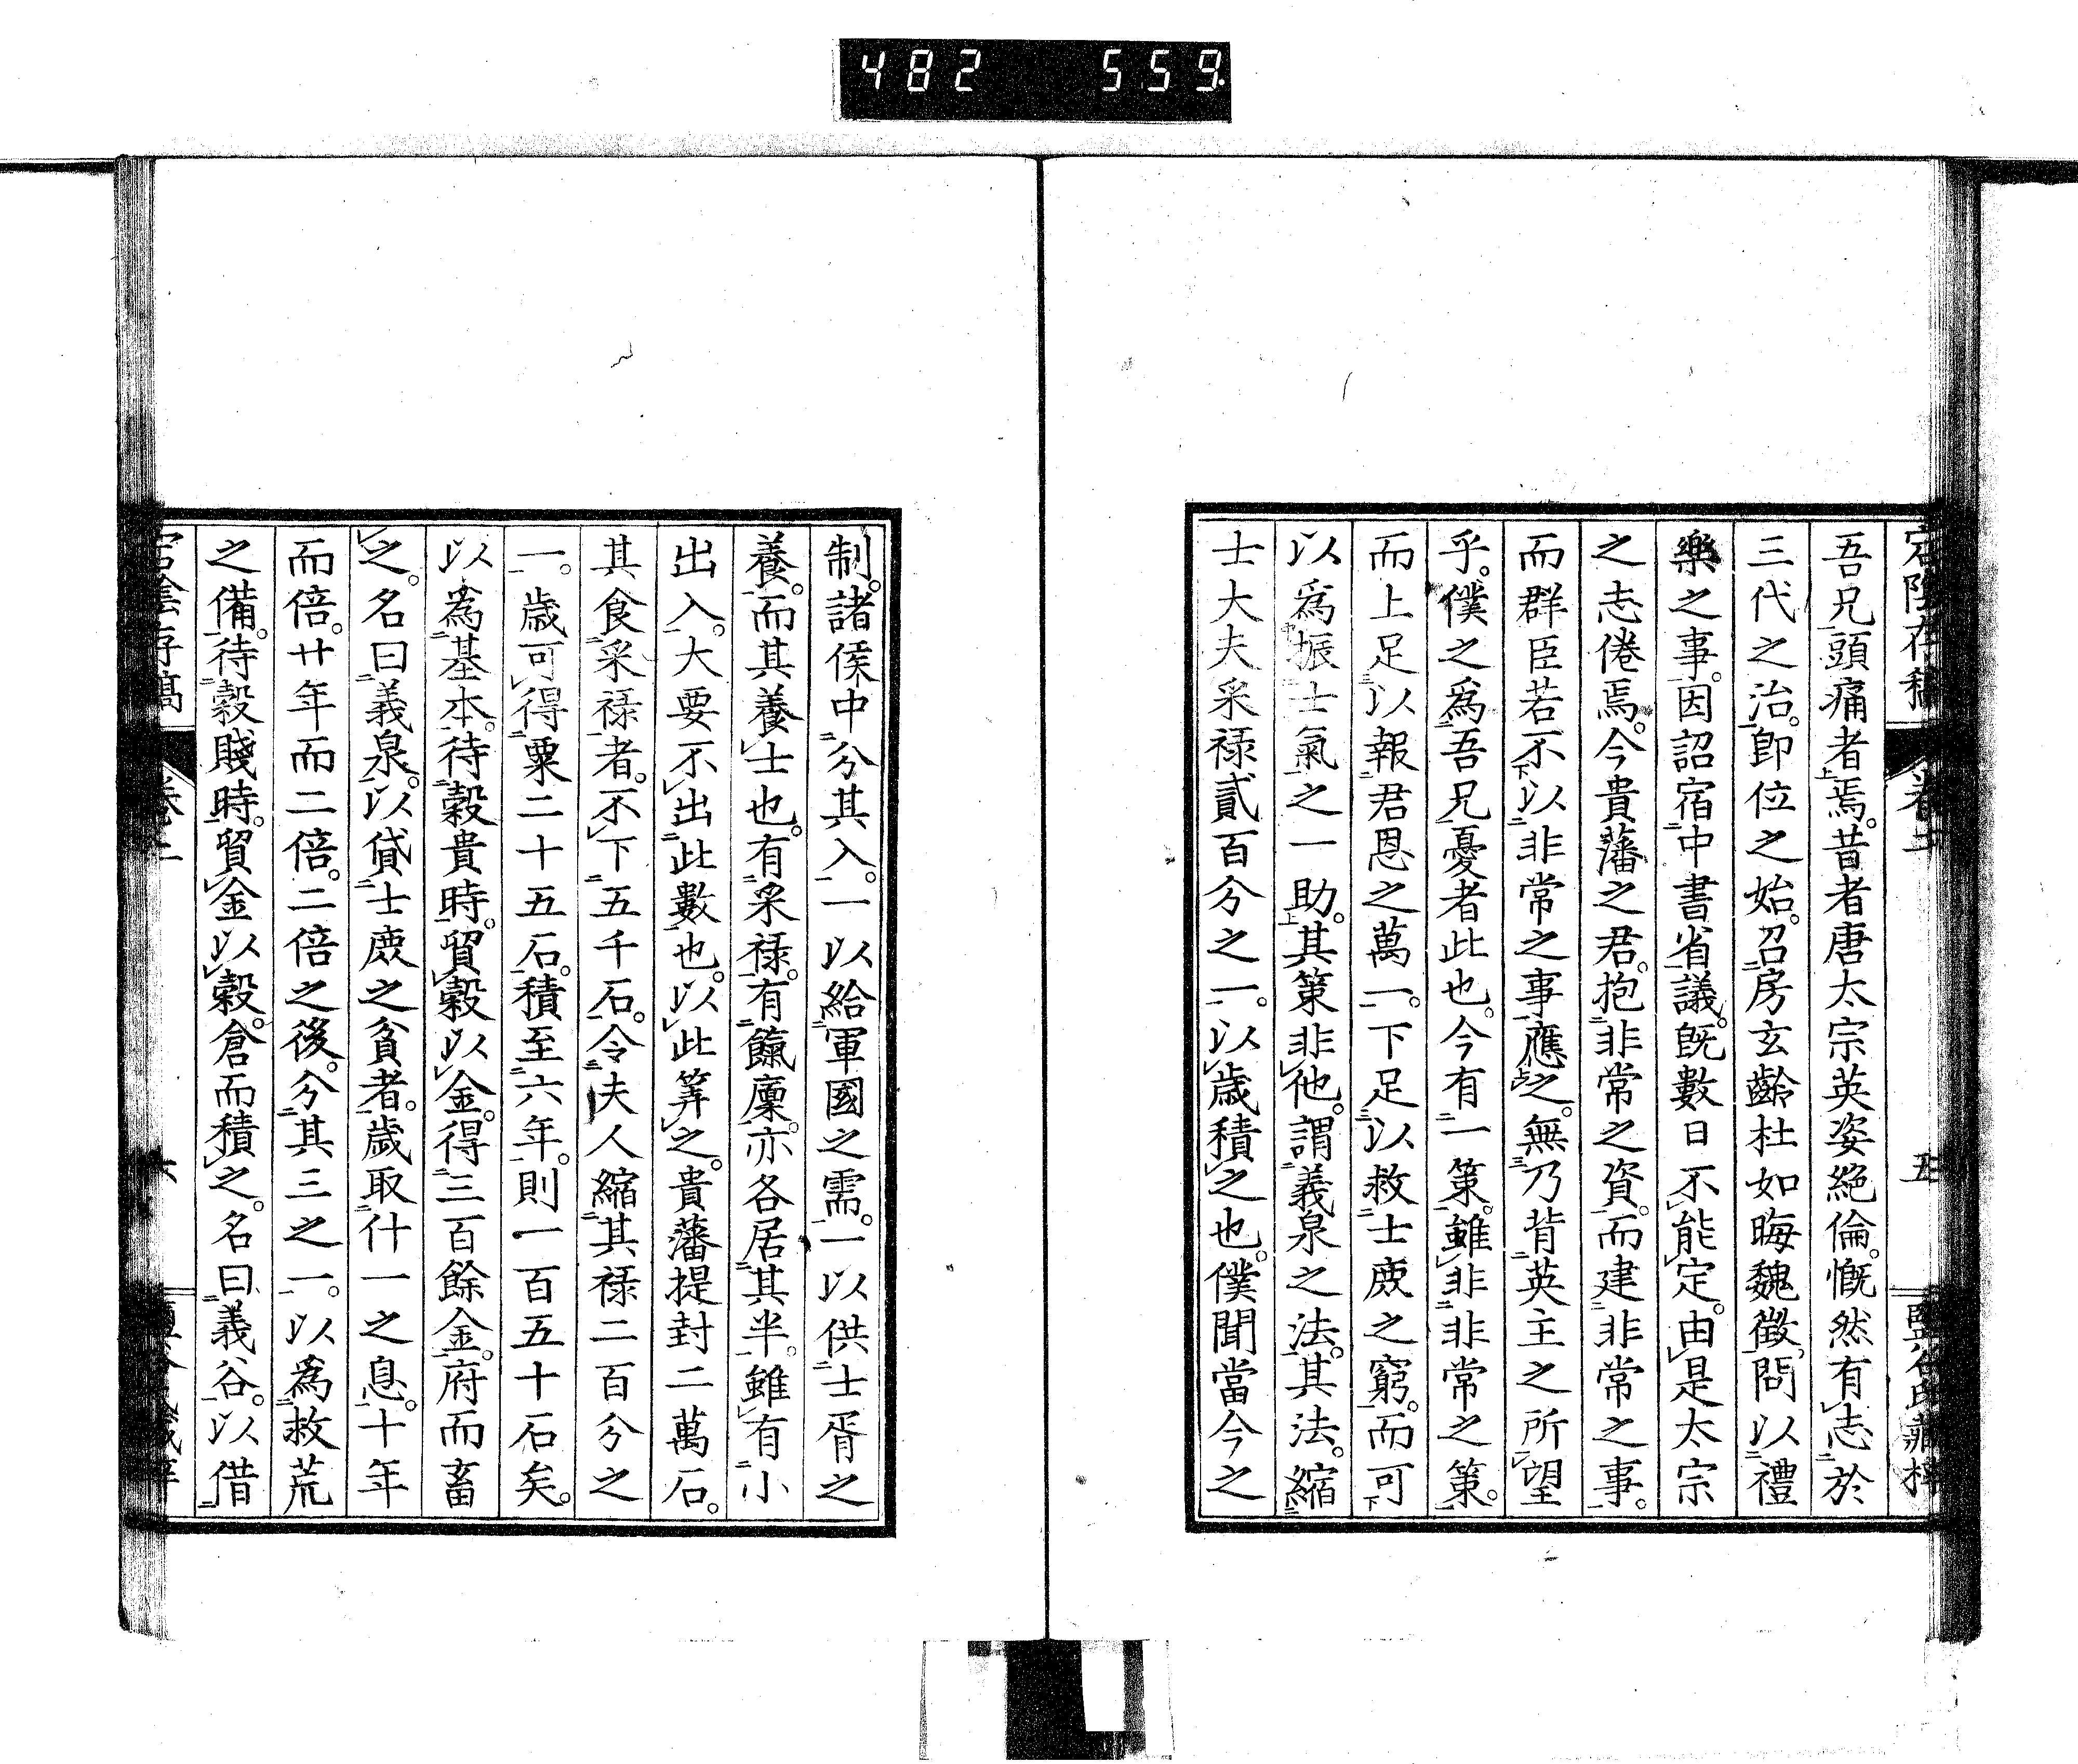 482 559
宕陰存稿 卷二 五
吾兄頭痛者焉。昔者唐太宗英姿絕倫。慨然有志於
三代之治。卽位之始。召房玄齡杜如晦魏徵。問以禮
樂之事。因詔宿中書省議。旣數日不能定。由是太宗
之志倦焉。今貴藩之君。抱非常之資。而建非常之事。
而群臣若不以非常之事應之。無乃背英主之所望
乎。僕之爲吾兄憂者此也。今有一策。雖非非常之策。
而上足以報君恩之萬一。下足以救士庶之窮。而可
以爲振士氣之一助。其策非他。謂義泉之法。其法。縮
士大夫采祿貳百分之一。以歳積之也。僕聞當今之
制。諸侯中分其入。一以給軍國之需。一以供士胥之
養。而其養士也。有采祿。有餼廩。亦各居其半。雖有小
出入。大要不出此數也。以此筭之。貴藩提封二萬石。
其食采祿者。不下五千石。令夫人縮其祿二百分之
一。歳可得粟二十五石。積至六年。則一百五十石矣。
以爲基本。待穀貴時。貿穀以金。得三百餘金。府而畜
之。名曰義泉。以貸士庶之貧者。歳取什一之息。十年
而倍。廿年而二倍。二倍之後。分其三之一。以爲救荒
之備。待穀賤時。貿金以穀。倉而積之。名曰義谷。以借